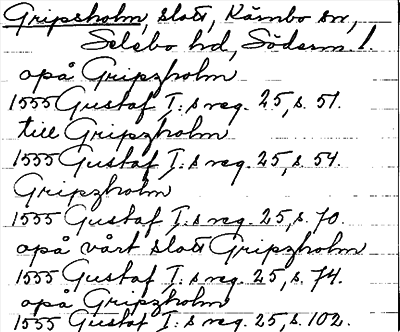 Gripsholm, slott, Kärnbo sn,
Selebo hd, Söderm. l.
opå Gripzholm
1555 Gustaf I:s reg. 25, s. 51.
till Gripzholm
1555 Gustaf I:s reg. 25, s. 54.
Gripzholm
1555 Gustaf I:s reg. 25, s. 70.
opå vårt slott Gripzholm
1555 Gustaf I:s reg. 25, s. 74.
opå Gripzholm
1555 Gustaf I:s reg. 25, s. 102.